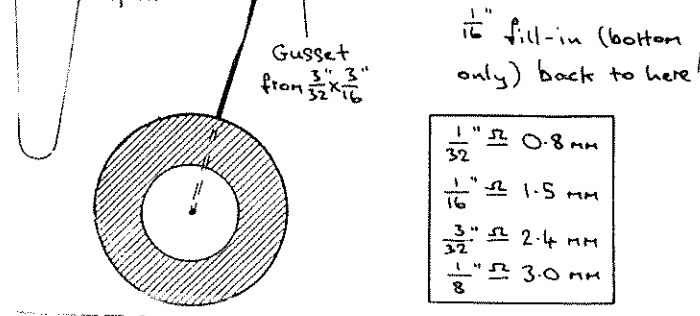 Gusset
from 3/32" x 3/16"
1/16" fill-in (bottom
only) back to here
1/32" ≏ 0.8 mm
1/16" ≏ 1.5 mm
3/32" ≏ 2.4 mm
1/8" ≏ 3.0 mm